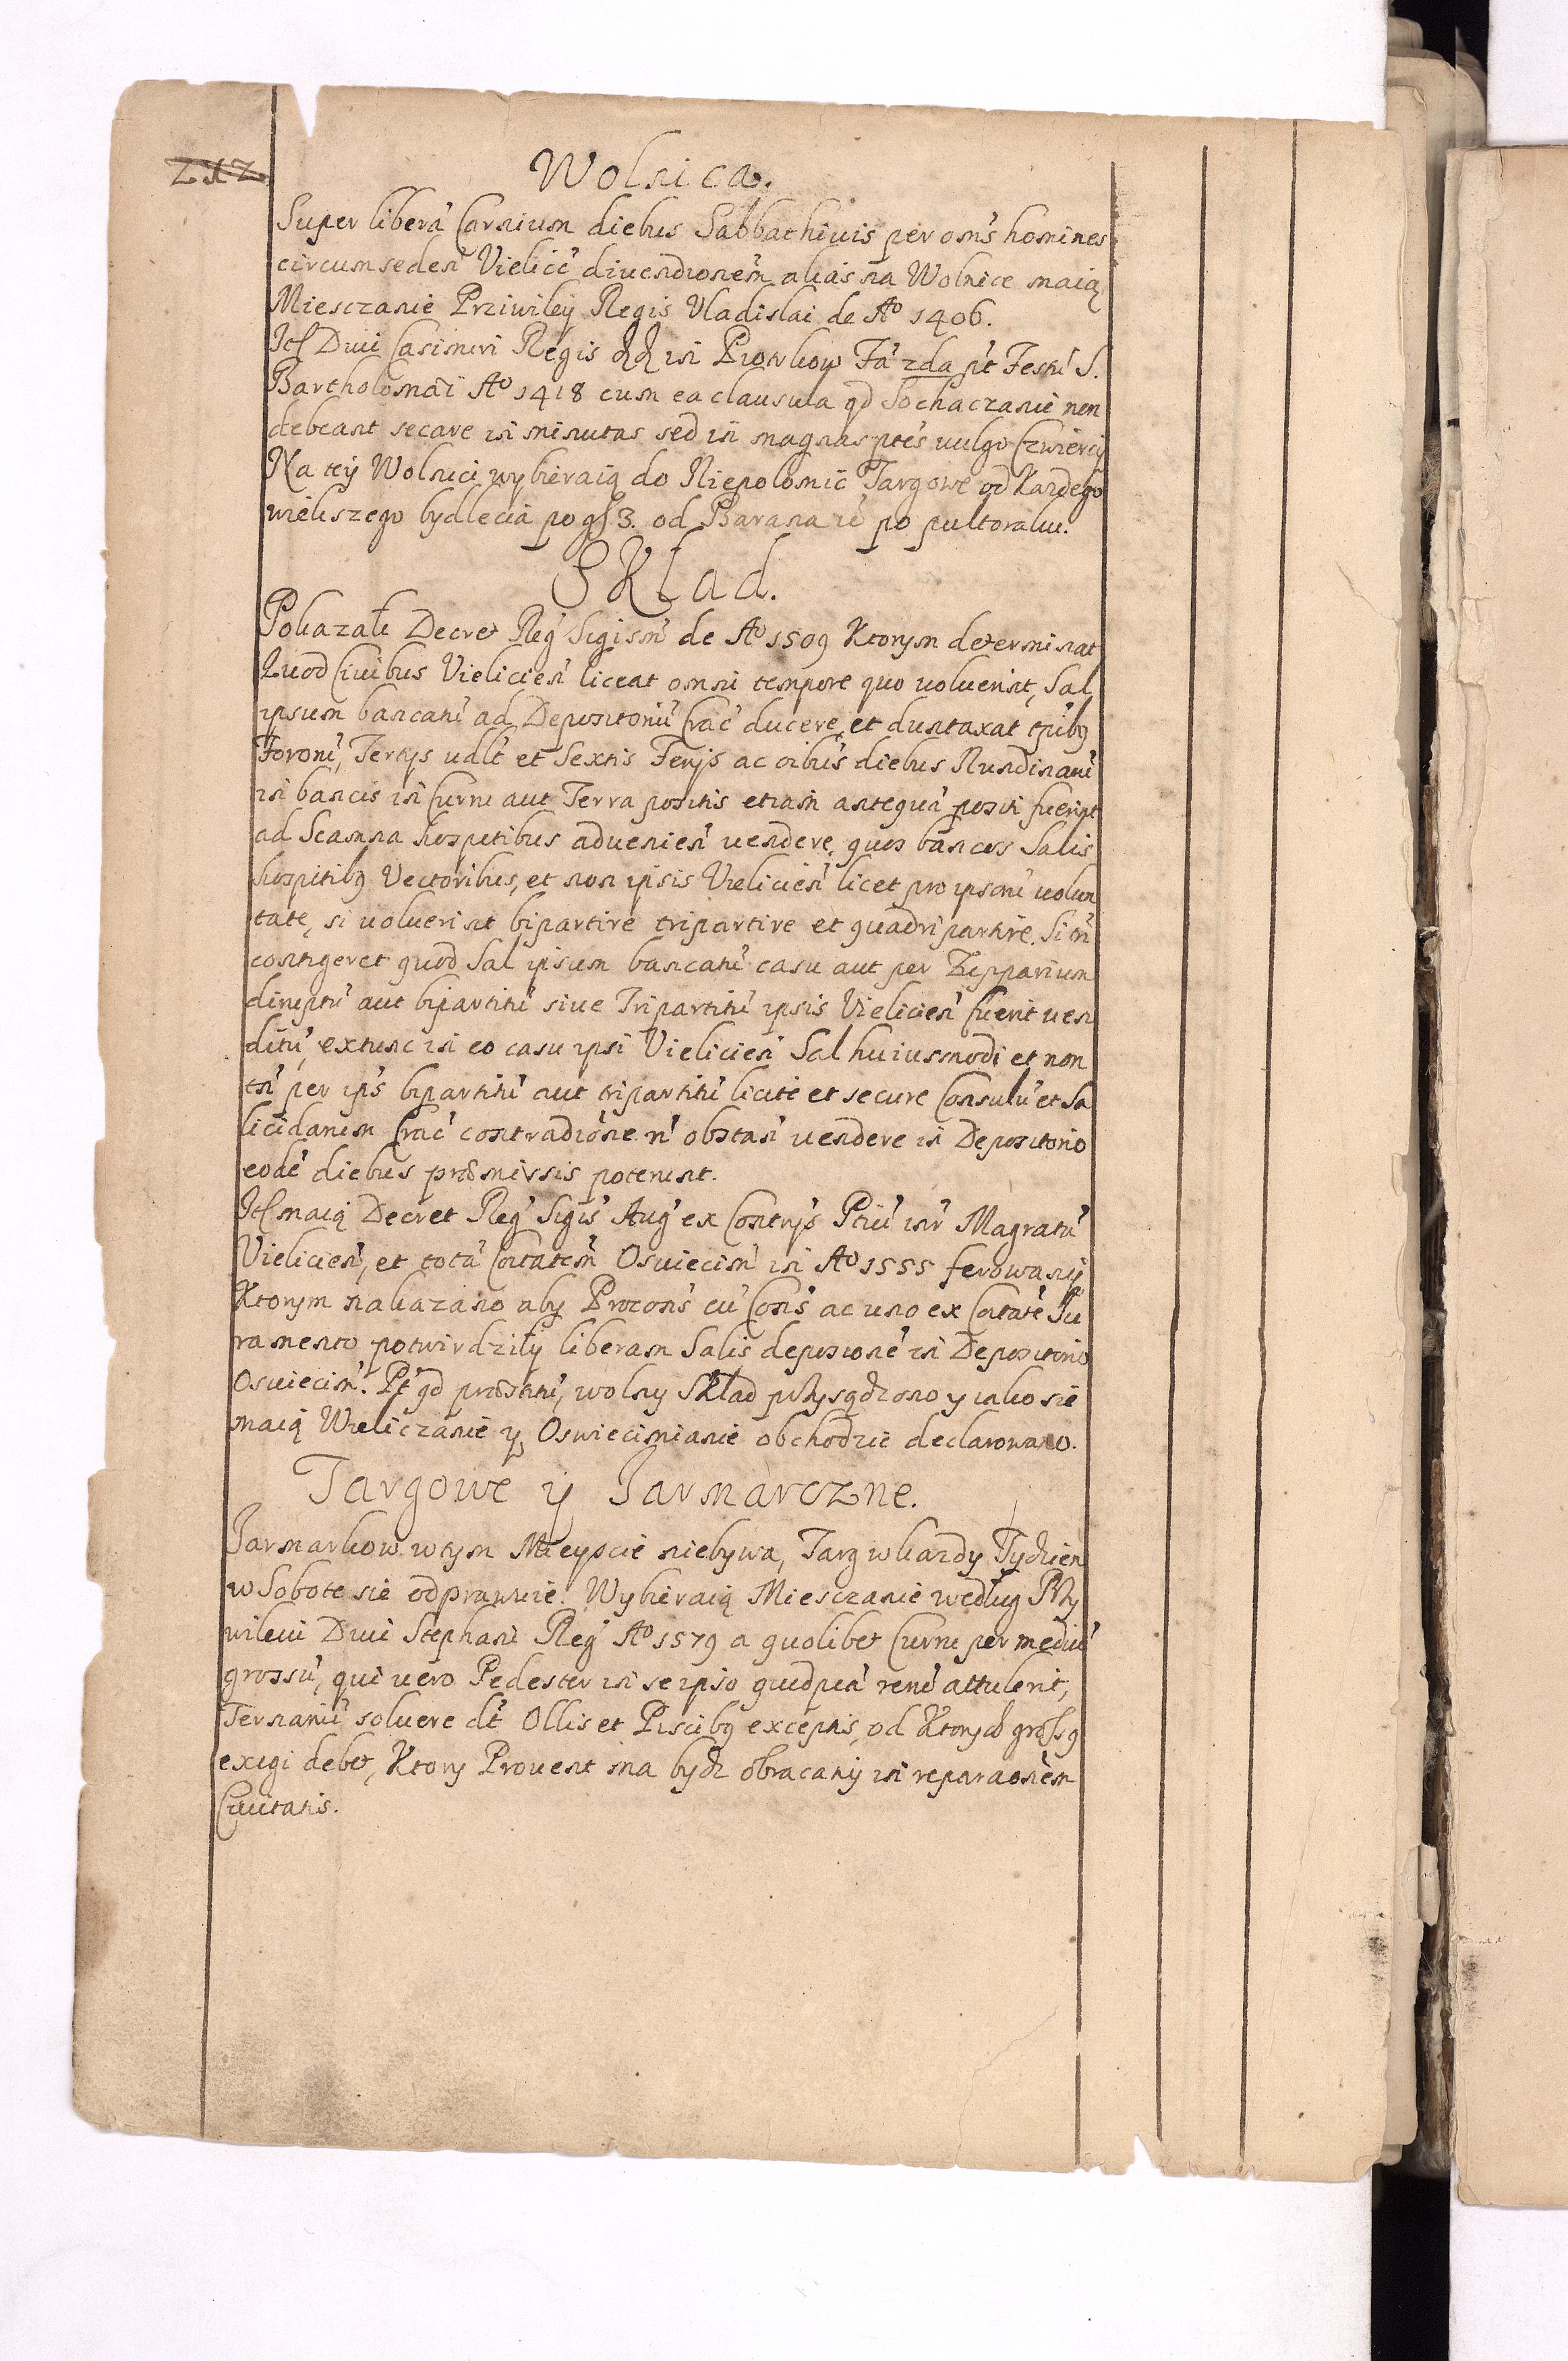 Wolnica.
Super liberã Carnium diebus Sabbathivis per omẽs homines
circumseden̄ Vielicẽ divendionem̃ alias na Wolnice maią
Miesczanie Prziwiley Regis Vladislai de Aº 1406.
Divi Casimiri Regis in Piotrkow Fã 2da Festũ S.
Bartholomæi Aº 1418 cum ea clausula qd Sochaczanie non
debeant secare in minutas sed in magnas ptẽs vulgo Czwierci
Na tey Wolnici wybieraią do Niepolomic Targowe od kazdego
wiekszego bydlecia po gſ 3. od Barana zẽ po pultoraku.
Skład.
Pokazali Decret Reg̃ Sigism̃ de Aº 1509 Ktorym determinat
Quod Civibus Vielicien̄ liceat omni tempore quo voluerint, Sal
ipsum bancanũ ad Depositoriũ Crac̃ ducere, et duntaxat
Foron̄, Tertys vdlt et Sextis Ferijs ac oibũs diebus Nundinarũ
in bancis in Curru aut Terra positis etiam antequã positi fuerint
ad Scamna hospitibus advenien̄ vendere, quos bancos Salis
hospitibꝰ Vectoribus, et non ipsis Vielicien̄ licet pro ipsorũ volun
tate, si voluerint bipartire tripartire et quadripartire. Si tñ
contigeret quod Sal ipsum bancanũ casu aut per Zupparium
direptũ aut bipartitũ sive Tripartitũ ipsis Vielicien̄ fuerit ven
ditũ, extunc in eo casu ipsi Vielicien̄ Sal huiusmodi et non
tñ per ips̃ bipartitũ aut tripartitũ licite et secure Consulũ et Sa
licidarum Crac̃ contradiõne ñ obstañ vendere in Depositorio
eodẽ diebus præmissis poterunt.
maią Decret Reg̃ Sigis̃ Aug̃ ex Contrỹs Ptiũ inr̃ Magratũ
Vielicien̄, et totã Cõitatem̃ Osviecim̃ in Aº 1555 ferowany
Ktorym nakazano aby Procons̃ cũ Cons̃ ac uno ex Cõitate Ju
ramento potwirdziły liberam Salis deposionẽ in Depositorio
Osviecim̃. Pt̃ qd præstitũ, wolny Skład przysądzono y iako sie
maią Wieliczanie y Oswiecimianie obchodzic declarowano.
Targowe y Jarmarczne.
Jarmarkow w tym Mieyscie niebywa, Targ w kazdy Tydzien
w Sobote sie odprawuie. Wybieraią Miesczanie według Przy
wileiu Divi Stephani Reg̃ Aº 1579 a quolibet Curru per mediũ
grossũ, qui vero Pedester in se ipso quidpiã rerũ attulerit,
Ternariũ solvere dt̃ Ollis et Piscibꝰ exceptis, od Ktorych grossꝰ
exigi debet, Ktory Provent ma bydz obracany in reparaonẽm
Civitatis.